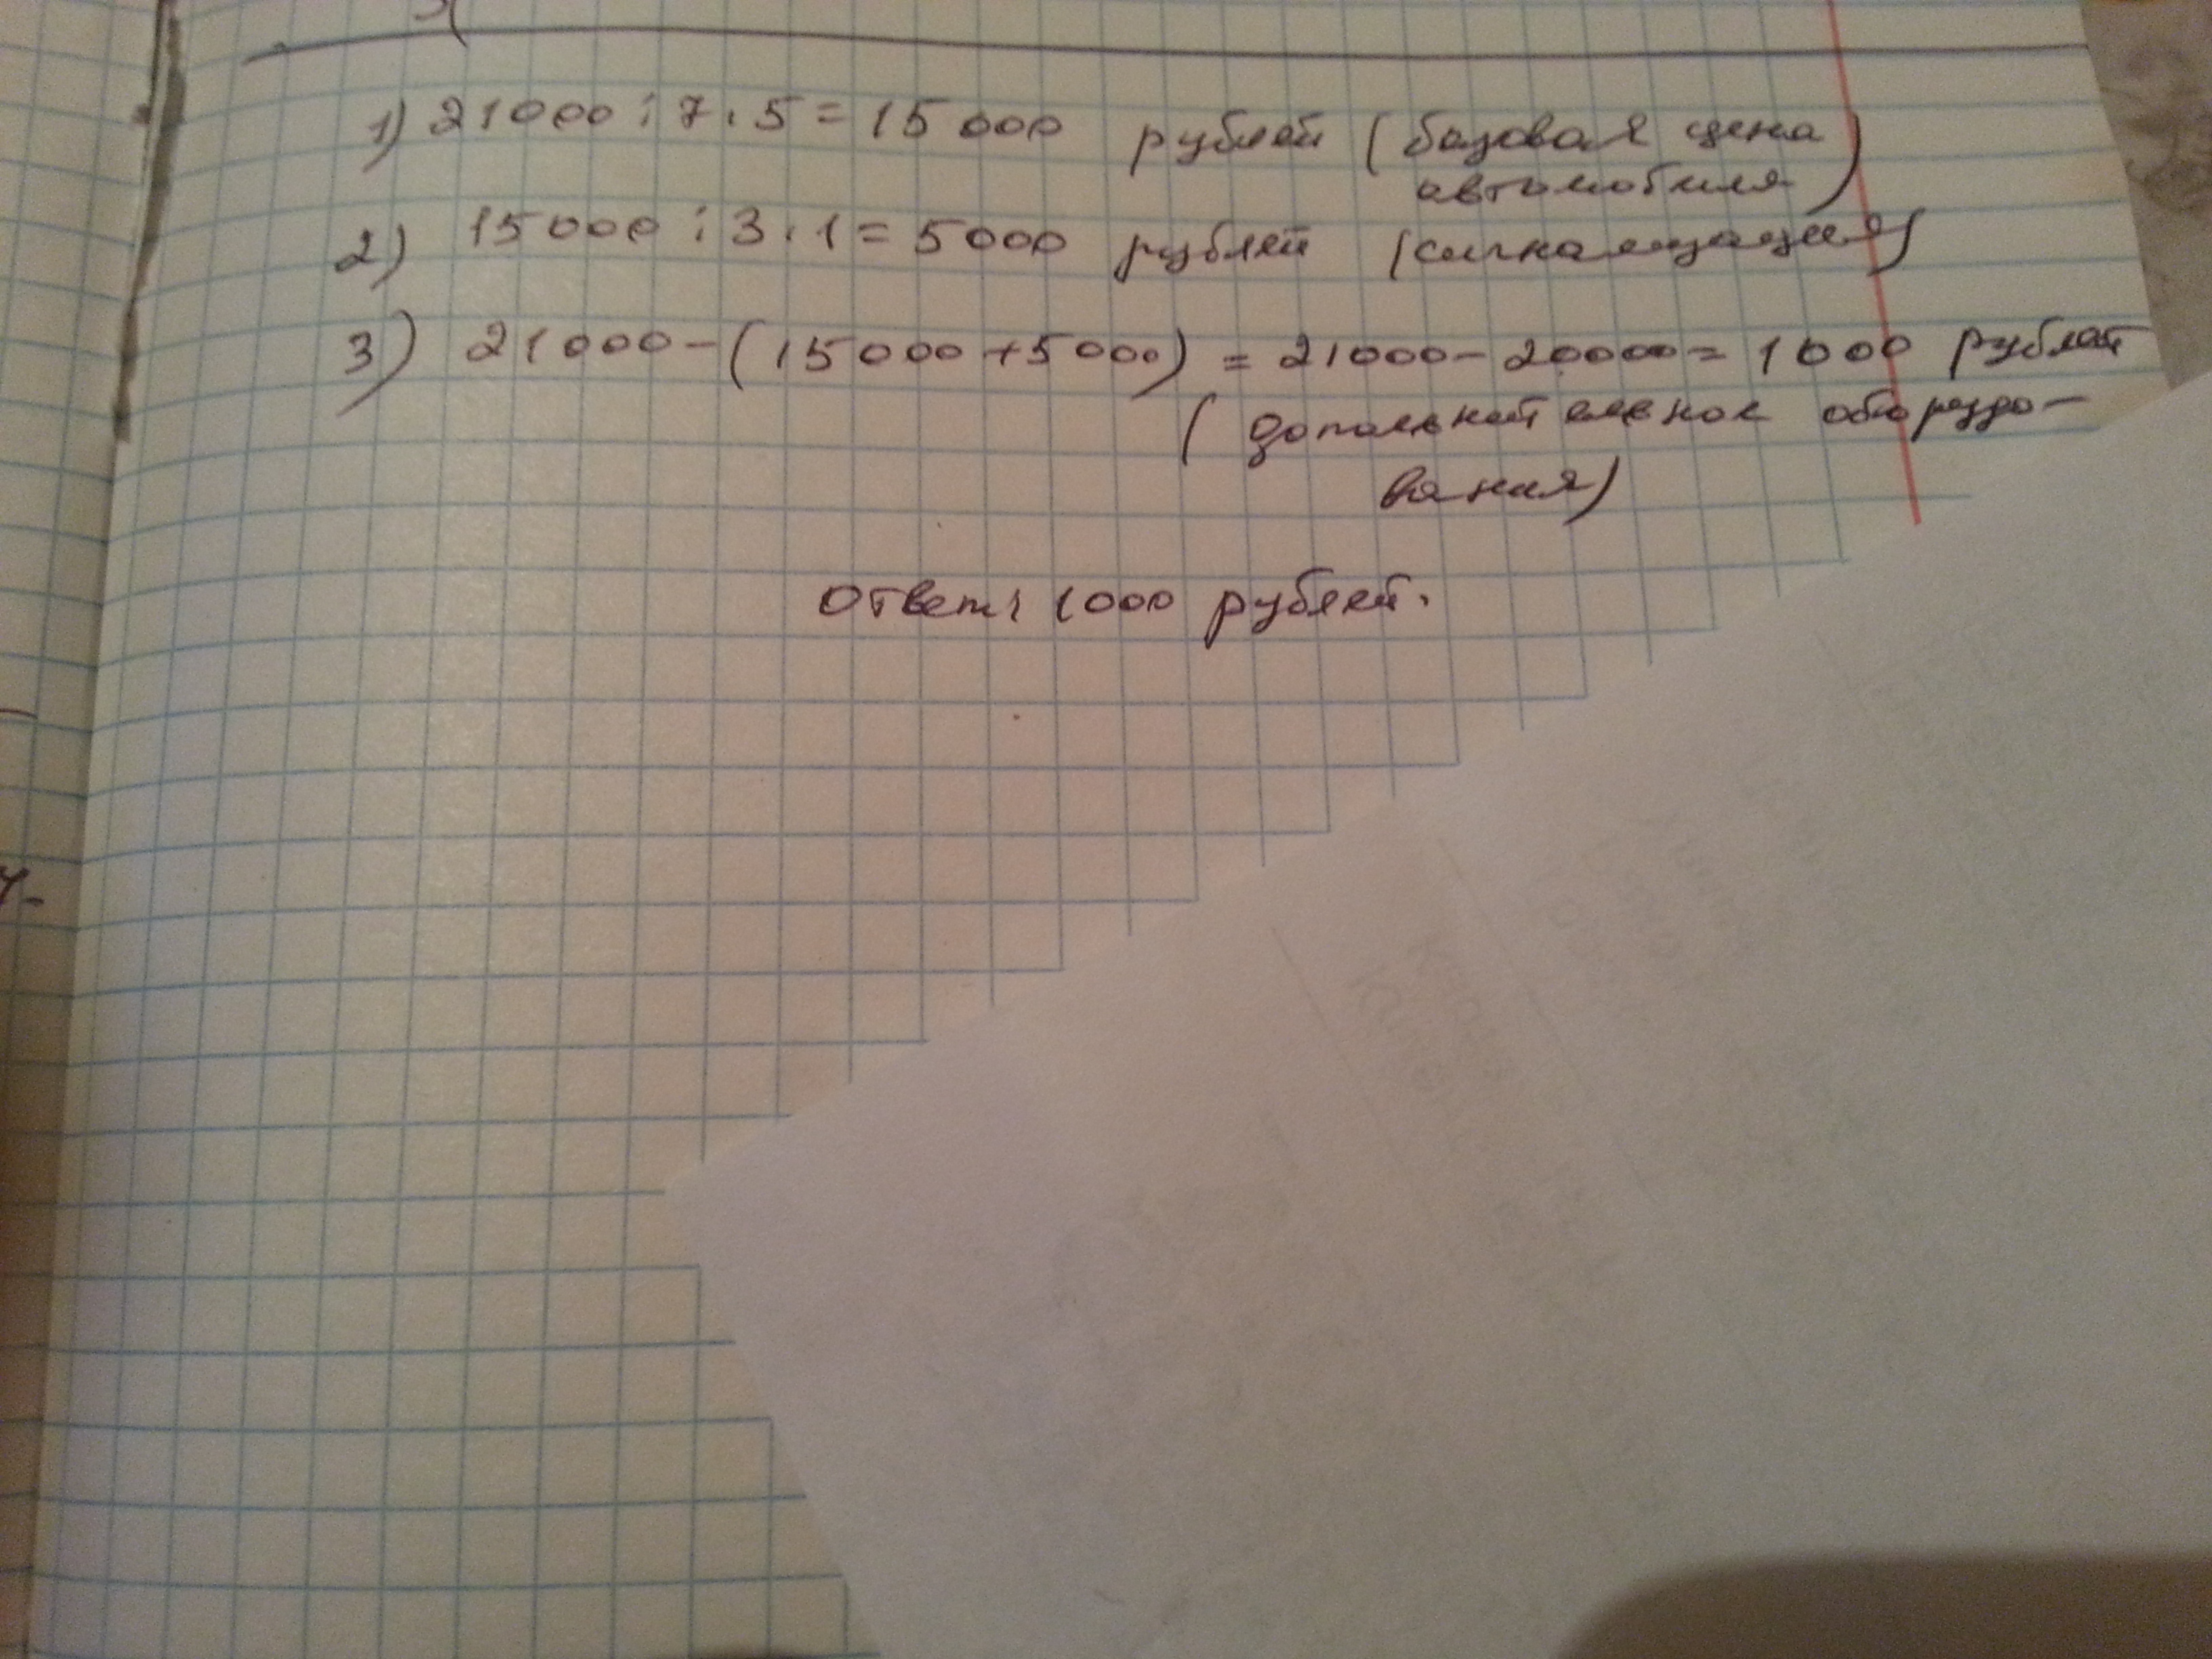 1) 21000 : 7 · 5 = 15 000 рублей (базовая цена
автомобиля)
2) 15000 : 3 · 1 = 5000 рублей (сигнализация)
3) 21000 - (15000 + 5000) = 21000 - 20000 = 1000 рублей
(дополнительное оборудо-
вания)
Ответ: 1000 рублей.